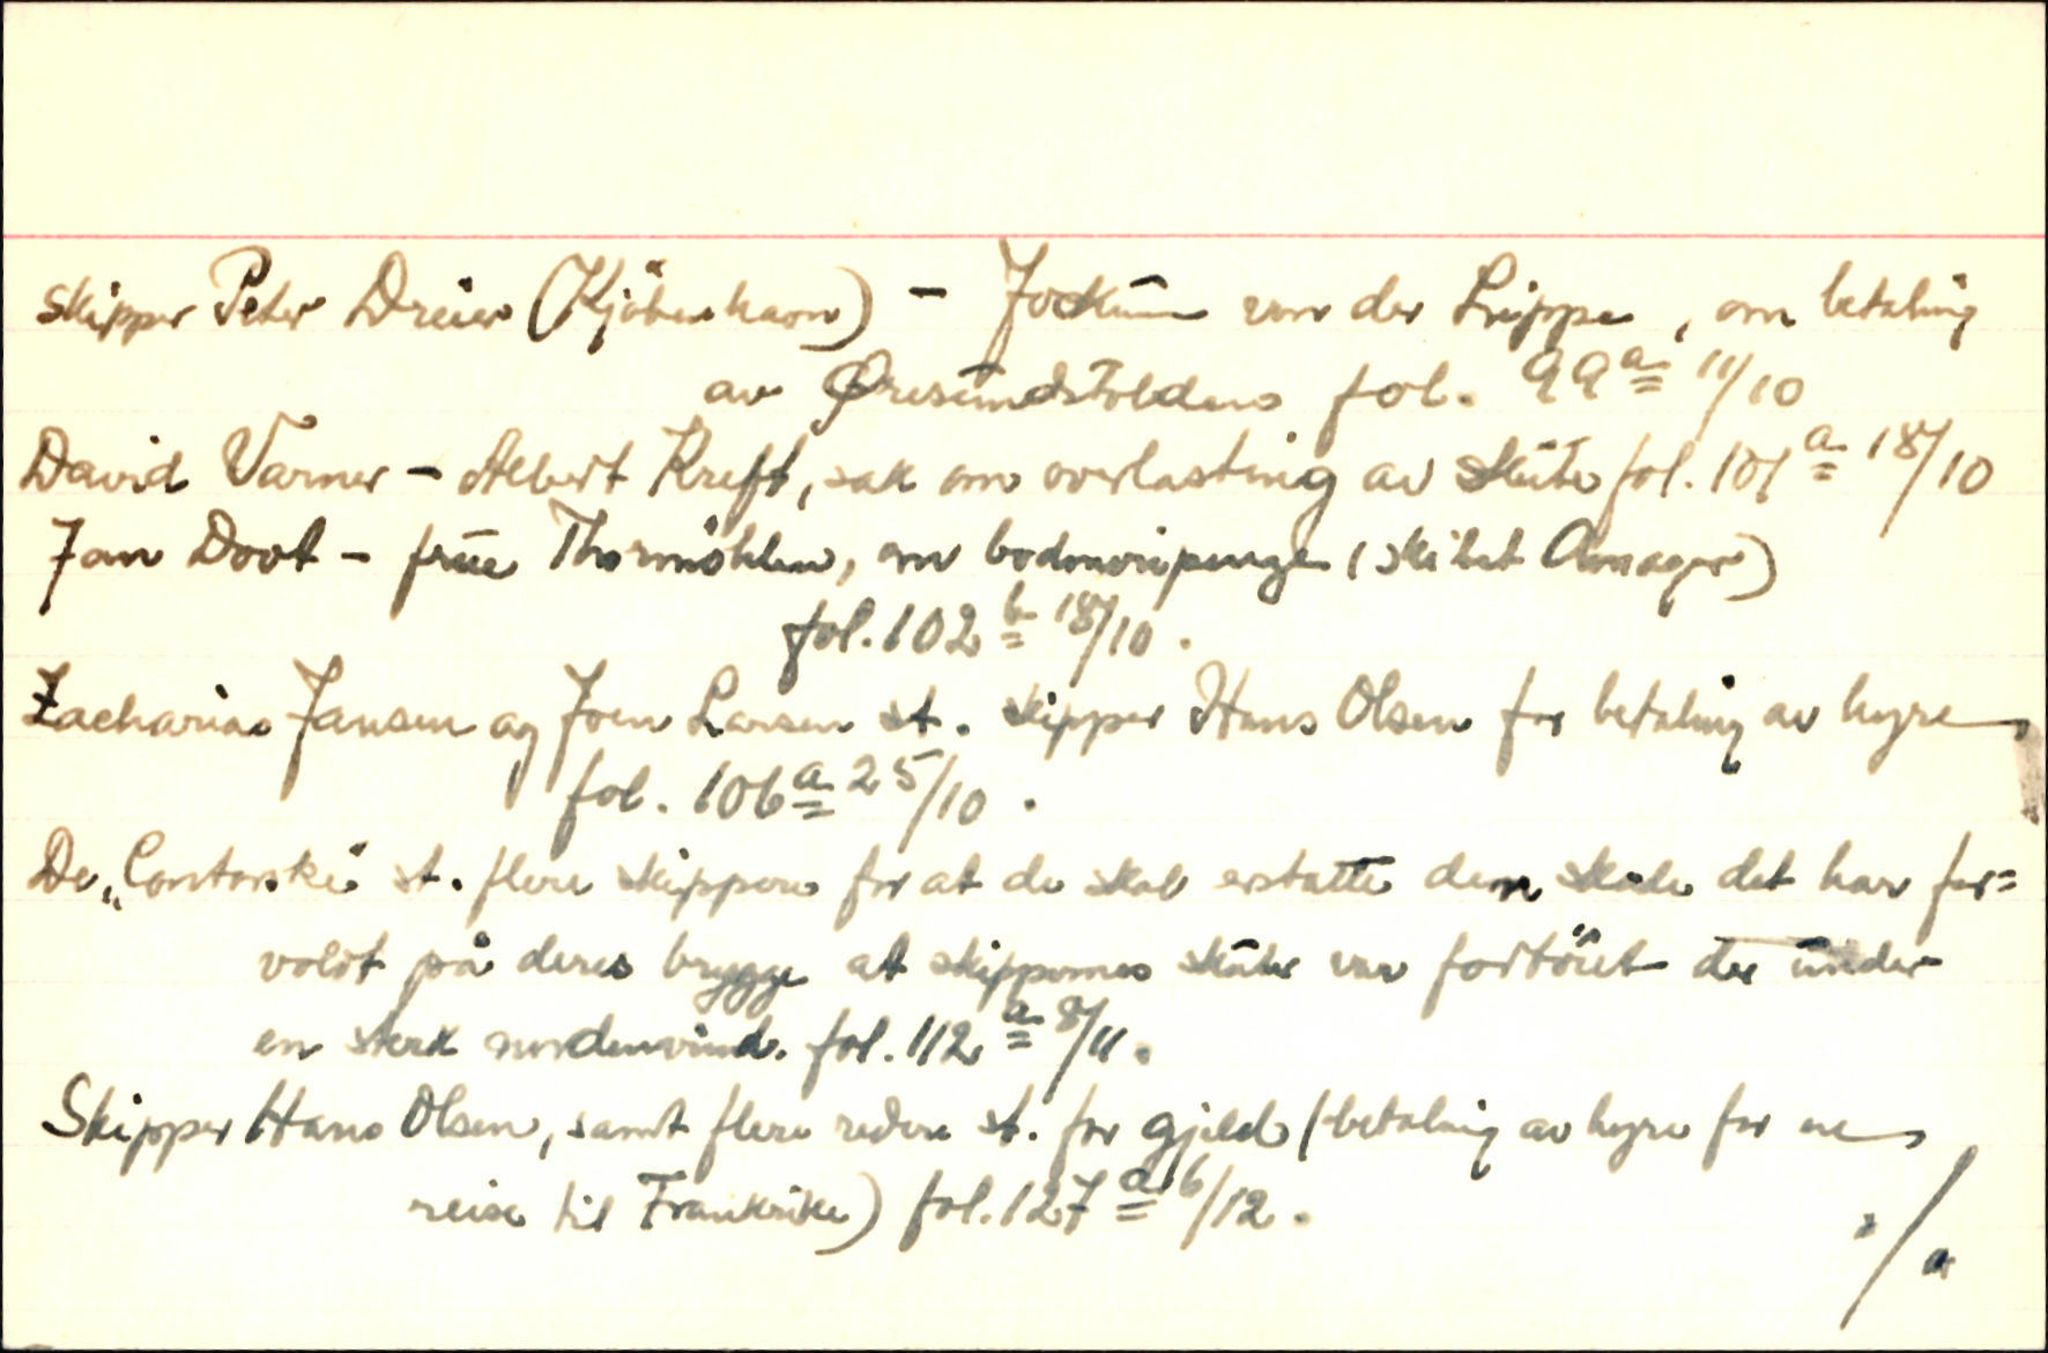 Skipper Peter Dreier (Kjöbenhavn) - Jockum von der Lippe, om betaling
av Øresundstolden fol. 99a 11/10
David Varner - Albert Kreft, sak om overlasting av skute fol. 101a 18/10
Jan Doot - frue Thormöhlen, om bodmeripenge (skibet Amager)
fol. 102b 18/10.
Zacharias Jansen og Joen Larsen st. skipper Hans Olsen for betaling av hyre,
fol. 106a 25/10.
De „Contorske" st. flere skippere for at de skal erstatte den skade det har for=
voldt på deres brygge at skippernes skuter var fortöiet der under
en sterk nordenvind. fol. 112a 8/11.
Skipper Hans Olsen, samt flere redere st. for gjeld (betaling av hyre for en
reise til Frankrike) fol. 127a 16/12.
./.